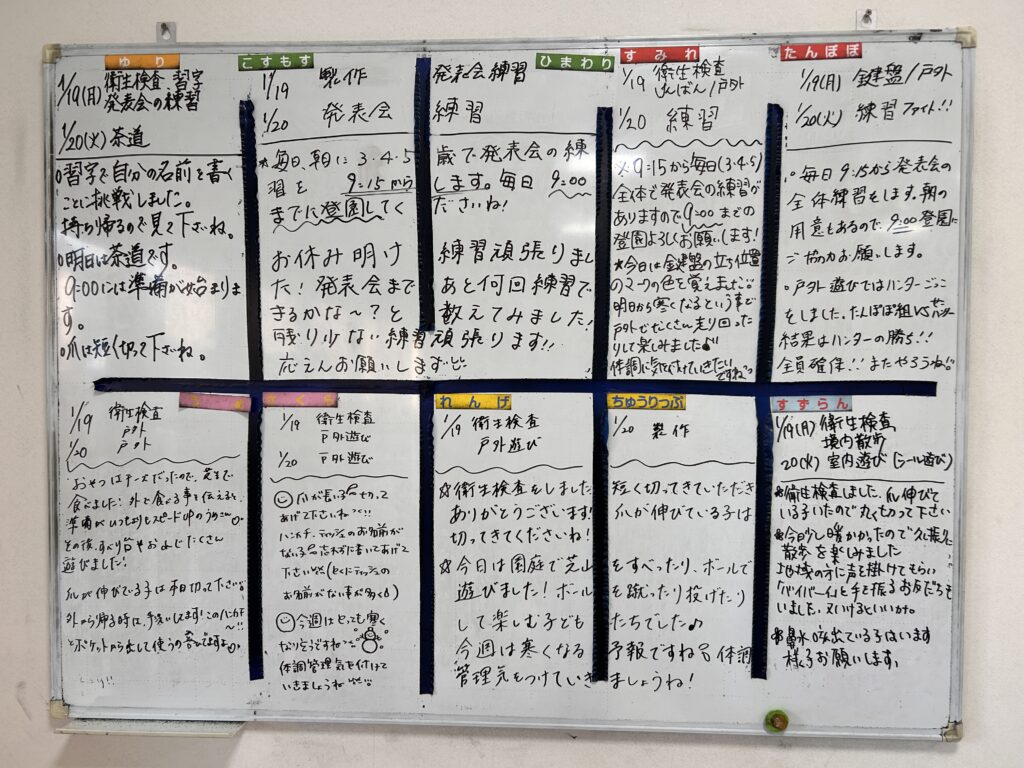 ゆり
1/19(月) 衛生検査・習字
発表会の練習
1/20(火) 茶道
○習字で自分の名前を書く
ことに挑戦しました。
持ち帰るので見て下さいね。
○明日は茶道です。
9:00には準備が始まりま
す。
○爪は短く切って下さいね。
こすもす
ひまわり
1/19 製作 発表会練習
1/20 発表会練習
*毎日、朝に3・4・5歳で発表会の練
習を9:15からします。毎日9:00
までに登園してくださいね!
お休み明け練習頑張りまし
た!発表会まであと何回練習で
きるかな〜?と数えてみました!
残り少ない練習頑張ります!!
応えんお願いします
すみれ
1/19 衛生検査
けんばん/戸外
1/20 練習
※9:15から毎日(3・4・5)
全体で発表会の練習が
ありますので9:00までの
登園よろしくお願いします!
*今日は鍵盤の立ち位置
の2つの色を覚えました
明日から寒くなるという事で
戸外でたくさん走り回った
りして楽しみました♪
体調に気をつけていきたい
ですね
たんぽぽ
1/19(月) 鍵盤/戸外
1/20(火) 練習ファイト!!
○毎日9:15から発表会の
全体練習をします。朝の
用意もあるので、9:00登園に
ご協力お願いします。
○戸外遊びではハンターごっこ
をしました。たんぽぽ組VS
結果はハンターの勝ち!!
全員確保!!またやろうね!!
1/19 衛生検査
戸外
1/20 戸外
おやつはチーズだったので、
食べました!外で食べる事を伝えると
準備がいつもよりもスピード
その後、すべり台やおよじたくさん
遊びました!
爪が伸びている子は切って下さいね
外から帰る時に、手洗いしてます!このハンカチ
〜!!
とポケットから出して使う
さくら
1/19 衛生検査
戸外遊び
1/20 戸外遊び
爪が長いお切って
あげて下さいね
ハンカチ、ティッシュのお名前が
ない忘れずに書いてあげて
下さい(とくにティッシュの
お名前がない事が多く)
今週はとっても寒く
なりそうですね
体調管理気を付けて
いきましょうね
れんげ
ちゅうりっぷ
1/19 衛生検査
戸外遊び
1/20 製作
☆衛生検査をしました 短く切ってきていただき
ありがとうございます! 爪が伸びている子は
切ってきてくださいね!
☆今日は園庭で芝山をすべったり、ボールで
遊びました!ボールを蹴ったり投げたり
して楽しむ子どもたちでした♪
今週は寒くなる予報ですね 体調
管理気をつけていきましょうね!
すずらん
1/19(月) 衛生検査
境内散歩
20(火) 室内遊び(シール遊び)
*衛生検査しました。爪伸びて
いる子いたので丸く切って下さい
*今日少し暖かかったので久し振りに
散歩を楽しみました
地域の方に声を掛けてもらい
「バイバーイ」と手を振るお友だちも
いました。又いけるといいね。
*鼻水が出ている子はいます
様子お願いします。